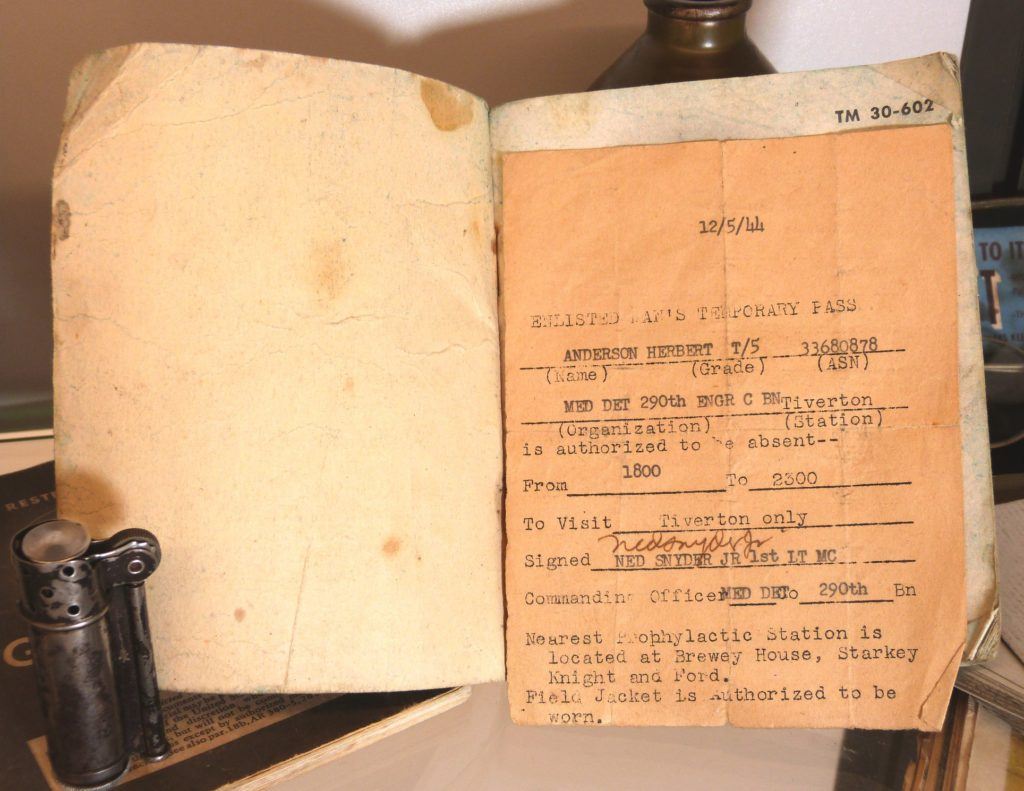 TM 30-602
12/5/44
ENLISTED MAN'S TEMPORARY PASS
ANDERSON HERBERT T/5 33680878
(Name) (Grade) (ASN)
MED DET 290th ENGR C BN Tiverton
(Organization) (Station)
is authorized to be absent--
1800
From To 2300
To Visit Tiverton only
Ned Snyder Jr
Signed NED SNYDER JR 1st LT MC
Commanding Officer MED DET Co 290th Bn
Nearest Prophylactic Station is
located at Brewey House, Starkey
Knight and Ford.
Field Jacket is Authorized to be
worn.
TO IT
T
RESTR
G
United
but will not be
except by
See also par. 18b, AR 380-5